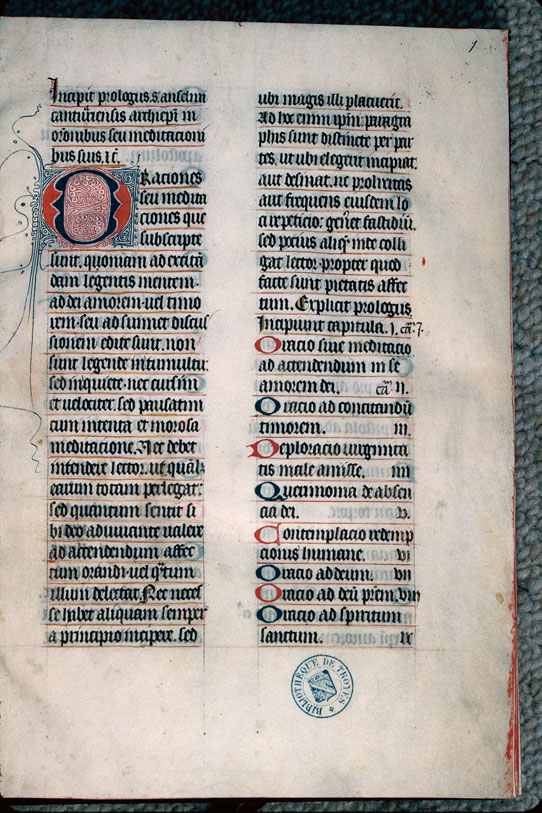 1
Incipit prologus. s. anselmi
cantuariensis archiepi in
oronibus seu meditationi
bus suis. et.
Oraciones
seu medita
ciones que
subscripte
sunt. quoniam ad excita
dam legentis mentem
ad dei amorem. uel timo
rem. seu ad suimet discus
sionem edite sunt. non
sunt legende in tumultu.
sed in quiete. nec cursim
et velociter. sed paulatim
cum intenta et morosa
meditacione. Nec debet
intendere lector. ut qual
earum totam perlegat.
sed quantum sentit si
bi deo adiuuante ualere
ad accendendum affec
tum orandi. uel qtum
illum delectat. Nec necesse
se habet aliquam semper
a principio incipere. sed
ubi magis illi placuerit.
Ad hec enim ipm paragra
phis sunt distincte per par
tes. ut ubi elegerit incipiat.
aut desinat. ne prolixitas
aut frequens eiusdem lo
ci repeticio: genet fastidiu.
sed pocius aliqd inde colli
gat lector. propter quod
facte sunt pietatis affec
tum. Explicit prologus.
Incipiunt capitula. I. ca. 7.
Oracio siue meditacio
ad accendendum in se
amorem dei. ca II.
Oracio ad concitandu
timorem. III.
Deploracio uirginita
tis male amisse. IIII
Querimonia de absen
cia dei. V.
Contemplacio redemp
cionis humane. VI
Oracio ad deum. VII
Oracio ad deu prem. VIII
Oracio ad spiritum
sanctum. IX
BIBLIOTHEQUE DE TROYES